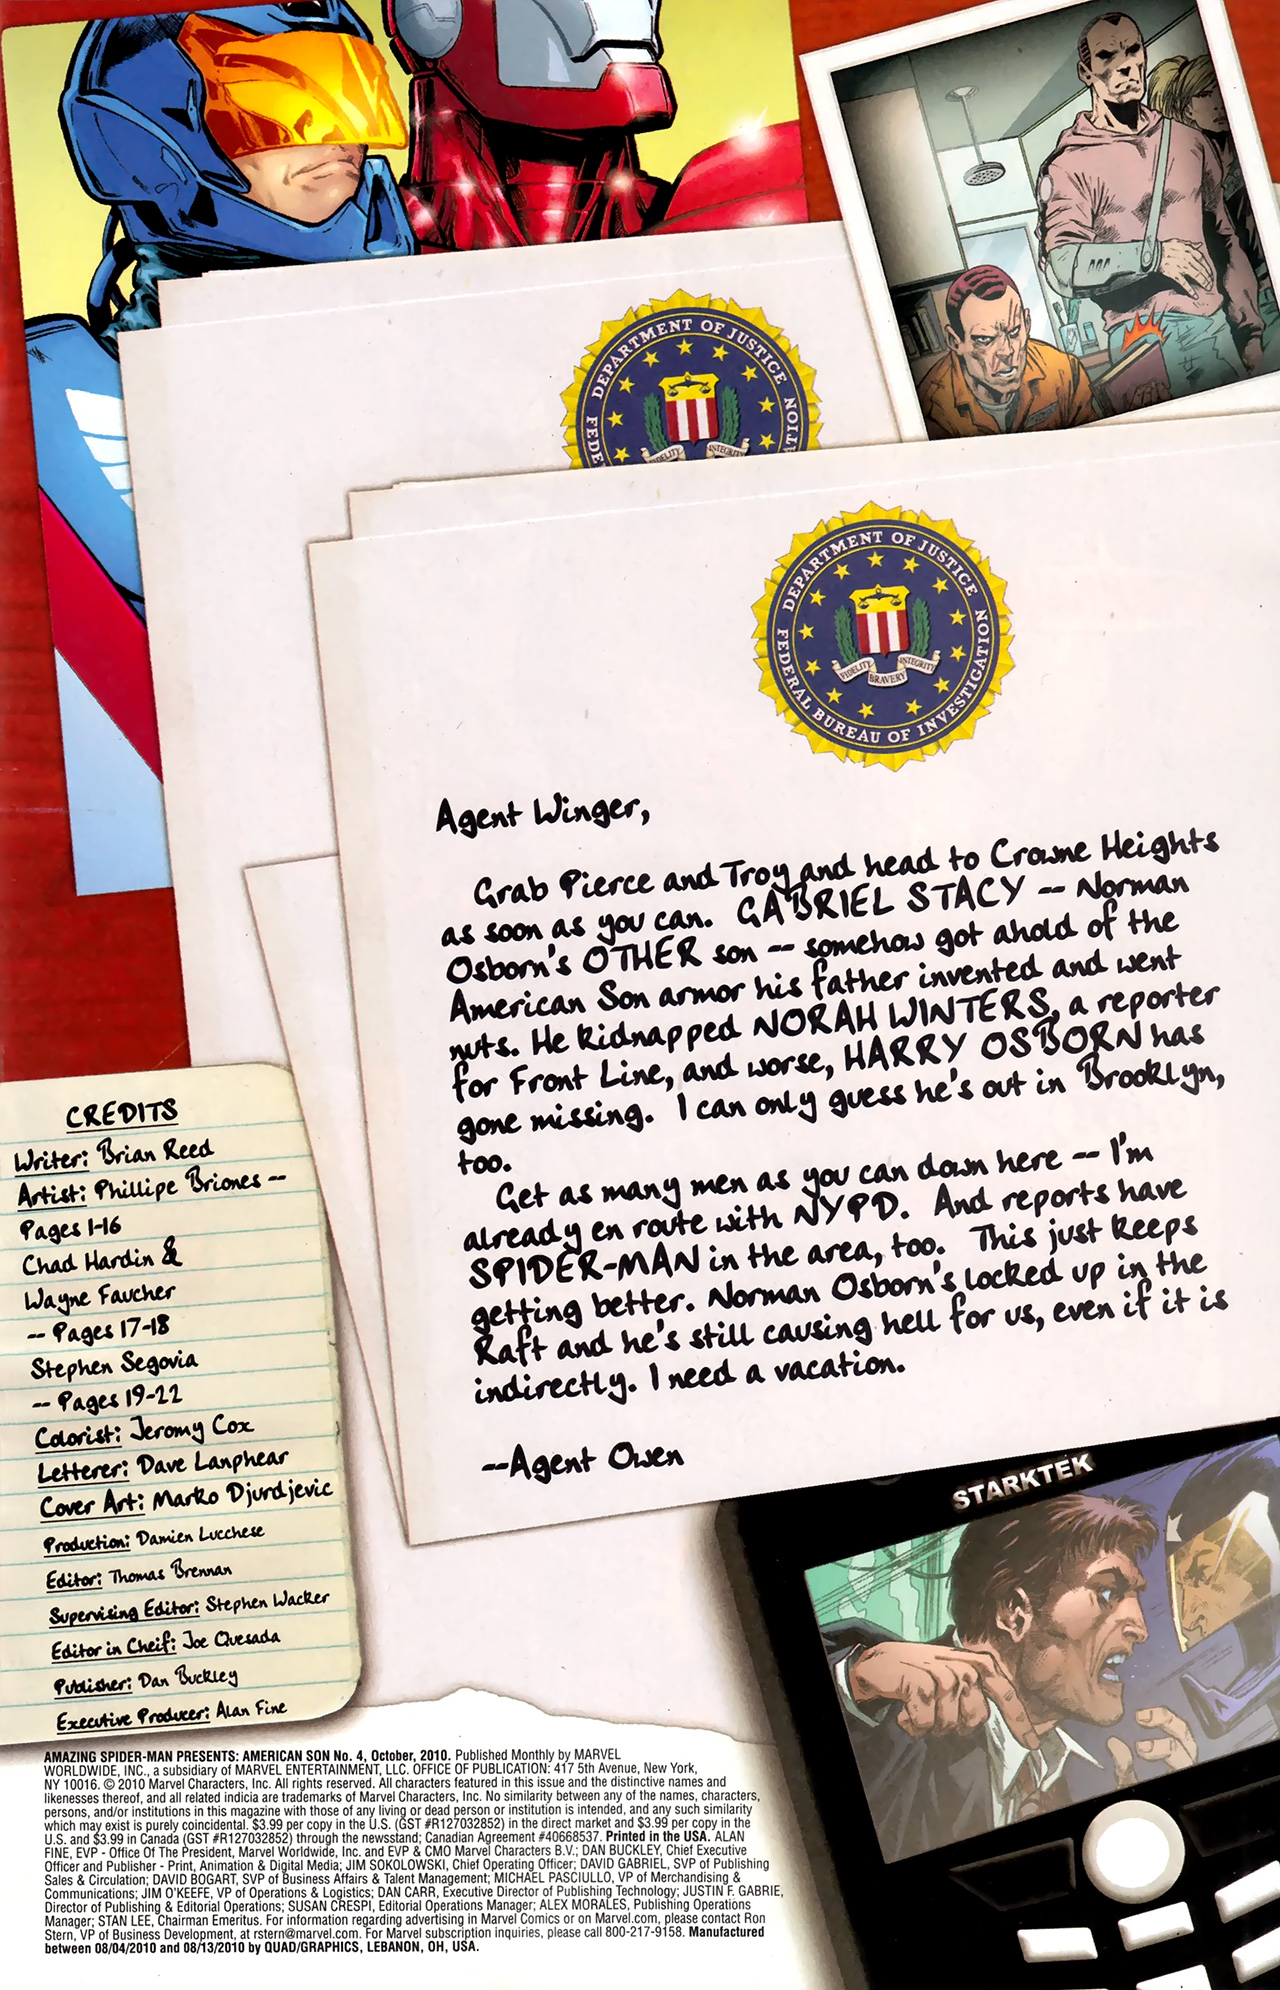 DEPARTMENT OF JUSTICE
FEDERAL
FIDELITY
INTEGRITY
DEPARTMENT OF JUSTICE
FEDERAL BUREAU OF INVESTIGATION
FIDELITY
BRAVERY
INTEGRITY
Agent Winger,
Grab Pierce and Troy and head to Crowne Heights
as soon as you can. GABRIEL STACY -- Norman
Osborn's OTHER son -- somehow got ahold of the
American Son armor his father invented and went
nuts. He kidnapped NORAH WINTERS, a reporter
for Front Line, and worse, HARRY OSBORN has
gone missing. I can only guess he's out in Brooklyn,
too.
Get as many men as you can down here -- I'm
already en route with NYPD. And reports have
SPIDER-MAN in the area, too. This just keeps
getting better. Norman Osborn's locked up in the
Raft and he's still causing hell for us, even if it is
indirectly. I need a vacation.
--Agent Owen
CREDITS
Writer: Brian Reed
Artist: Phillipe Briones --
Pages 1-16
Chad Hardin &
Wayne Faucher
-- Pages 17-18
Stephen Segovia
-- Pages 19-22
Colorist: Jeromy Cox
Letterer: Dave Lanphear
Cover Art: Marko Djurdjevic
Production: Damien Lucchese
Editor: Thomas Brennan
Supervising Editor: Stephen Wacker
Editor in Cheif: Joe Quesada
Publisher: Dan Buckley
Executive Producer: Alan Fine
STARKTEK
AMAZING SPIDER-MAN PRESENTS: AMERICAN SON No. 4, October, 2010. Published Monthly by MARVEL
WORLDWIDE, INC., a subsidiary of MARVEL ENTERTAINMENT, LLC. OFFICE OF PUBLICATION: 417 5th Avenue, New York,
NY 10016. © 2010 Marvel Characters, Inc. All rights reserved. All characters featured in this issue and the distinctive names and
likenesses thereof, and all related indicia are trademarks of Marvel Characters, Inc. No similarity between any of the names, characters,
persons, and/or institutions in this magazine with those of any living or dead person or institution is intended, and any such similarity
which may exist is purely coincidental. $3.99 per copy in the U.S. (GST #R127032852) in the direct market and $3.99 per copy in the
U.S. and $3.99 in Canada (GST #R127032852) through the newsstand; Canadian Agreement #40668537. Printed in the USA. ALAN
FINE, EVP - Office Of The President, Marvel Worldwide, Inc. and EVP & CMO Marvel Characters B.V.; DAN BUCKLEY, Chief Executive
Officer and Publisher - Print, Animation & Digital Media; JIM SOKOLOWSKI, Chief Operating Officer; DAVID GABRIEL, SVP of Publishing
Sales & Circulation; DAVID BOGART, SVP of Business Affairs & Talent Management; MICHAEL PASCIULLO, VP of Merchandising &
Communications; JIM O'KEEFE, VP of Operations & Logistics; DAN CARR, Executive Director of Publishing Technology; JUSTIN F. GABRIE,
Director of Publishing & Editorial Operations; SUSAN CRESPI, Editorial Operations Manager; ALEX MORALES, Publishing Operations
Manager; STAN LEE, Chairman Emeritus. For information regarding advertising in Marvel Comics or on Marvel.com, please contact Ron
Stern, VP of Business Development, at rstern@marvel.com. For Marvel subscription inquiries, please call 800-217-9158. Manufactured
between 08/04/2010 and 08/13/2010 by QUAD/GRAPHICS, LEBANON, OH, USA.